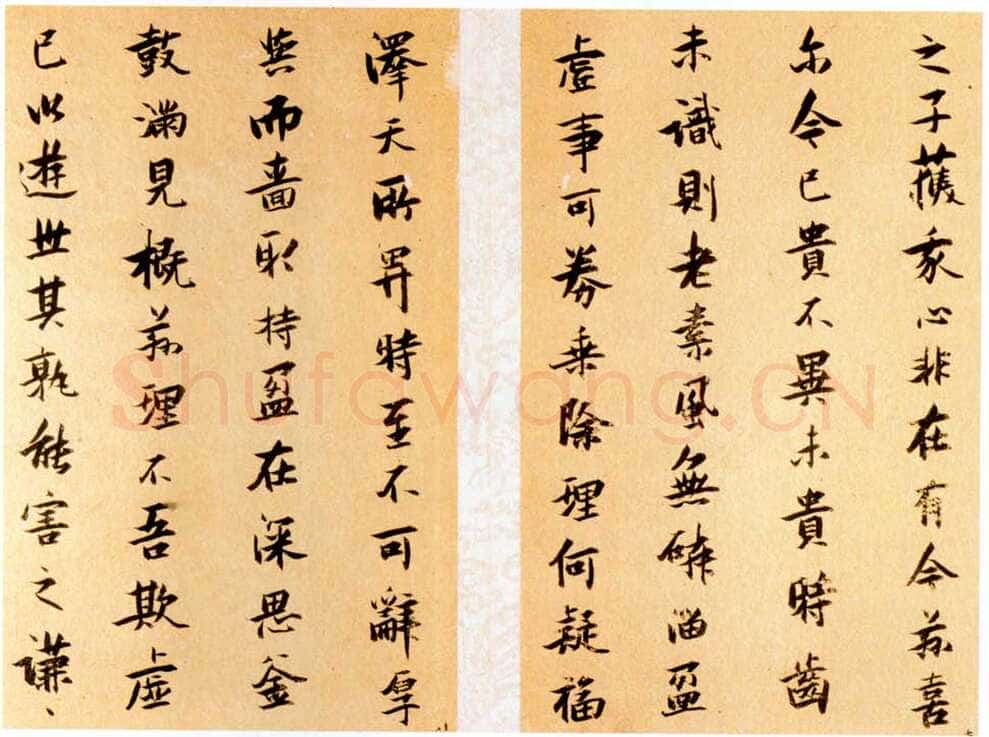 之子獲我心非在有今茲喜
尔今已貴不異未貴時齒
未識則老素風無磷淄盈
虛事可券乘除理何疑福
澤天所畀時至不可辭厚
與而嗇取持盈在深思釜
鼓滿見概茲理不吾欺虛
已以遊世其孰能害之謙、
Shufawang.CN